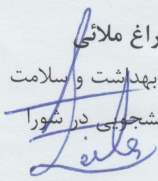 راغ ملائی
بهداشت و سلامت
شجویی در شورا